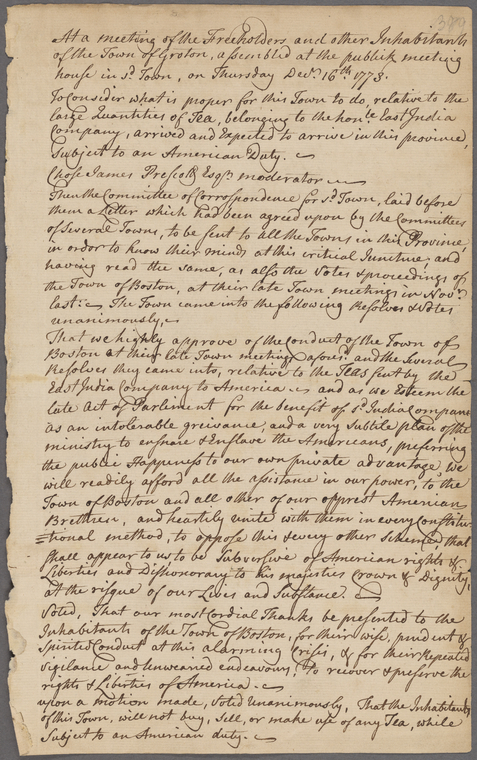 At a meeting of the Freeholders and other Inhabitants
of the Town of Groton, assembled at the publick meeting
house in sd. Town, on Thursday Decr. 16th. 1773.
To Consider what is proper for this Town to do, relative to the
large Quantities of Tea, belonging to the honble. East India
Company, arrived and Expected to arrive in this province,
Subject to an American Duty.
Chose James Prescott Esqr. moderator
Then the Committee of Correspondence for sd. Town, laid before
them a Letter which had been agreed upon by the Committees
of Several Towns, to be sent to all the Towns in this Province,
in order to know their minds at this critical Juncture; and
having read the same, as also the Votes & proceedings of
the Town of Boston, at their late Town meetings in Novr.
last: The Town came into the following Resolves & Votes
unanimously,
That we highly approve of the Conduct of the Town of
Boston at their late Town meeting aforesd. and the Several
Resolves they came into, relative to the Teas sent by the
East India Company to America and as we Esteem the
late Act of Parliment for the benefit of sd. India Company
as an intolerable greivance, and a very Subtile plan of the
ministry to ensnare & Enslave the Americans, preferring
the public Happeness to our own private advantage, we
will readily afford all the assistance in our power, to the
Town of Boston and all other of our opprest American
Brethren, and heartily unite with them in every Constitu=
=tional method, to oppose this & every other Scheme, that
shall appear to us to be Subversive of American rights &
Liberties and Dishonorary to his majesties Crown & Dignity,
at the risque of our Lives and Substance.
Voted, That our most Cordial Thanks be presented to the
Inhabitants of the Town of Boston, for their wise, prudent &
Spirited Conduct at this alarming Crisis, & for their Repeated
Vigilance and unwearied endeavours, to recover & preserve the
rights & Liberties of America.
upon a motion made, Voted Unanimously, That the Inhabitants
of this Town, will not buy, Sell, or make use of any Tea, while
Subject to an American duty.